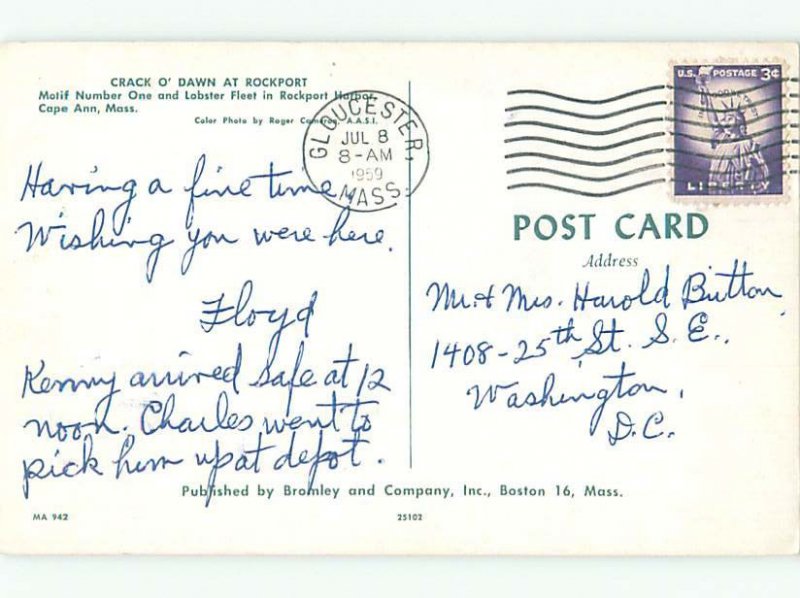 CRACK O' DAWN AT ROCKPORT
Motif Number One and Lobster Fleet in Rockport Harbor,
Cape Ann, Mass.
Color Photo by Roger Cameron, A.A.S.I.
GLOUCESTER,
JUL 8
8-AM
1959
MASS.
U.S. POSTAGE 3¢
LIBERTY
Having a fine time
Wishing you were here.
Floyd
Kenny arrived safe at 12
noon. Charles went to
pick him up at depot.
POST CARD
Address
Mr. & Mrs. Harold Britton
1408-25th St. S. E.,
Washington,
D.C.
Published by Bromley and Company, Inc., Boston 16, Mass.
MA 942
25102